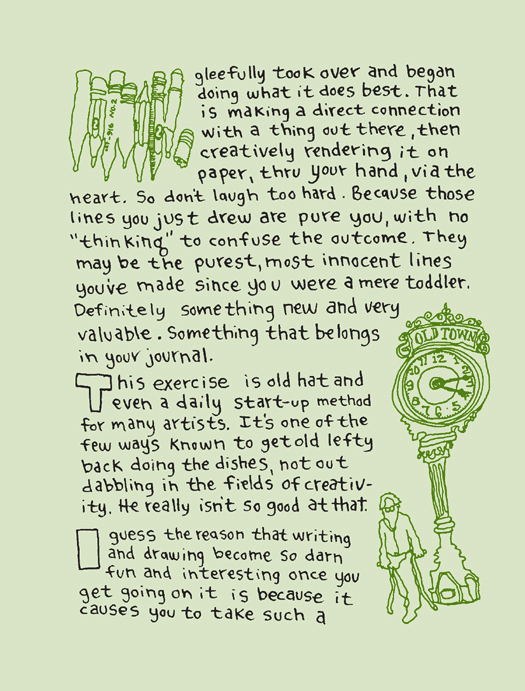 gleefully took over and began
doing what it does best. That
is making a direct connection
with a thing out there, then
creatively rendering it on
paper, thru your hand, via the
heart. So don't laugh too hard. Because those
lines you just drew are pure you, with no
"thinking" to confuse the outcome. They
may be the purest, most innocent lines
you've made since you were a mere toddler.
Definitely something new and very
valuable. Something that belongs
in your journal.
OLD TOWN
This exercise is old hat and
even a daily start-up method
for many artists. It's one of the
few ways known to get old lefty
back doing the dishes, not out
dabbling in the fields of creativ-
ity. He really isn't so good at that.
I guess the reason that writing
and drawing become so darn
fun and interesting once you
get going on it is because it
causes you to take such a